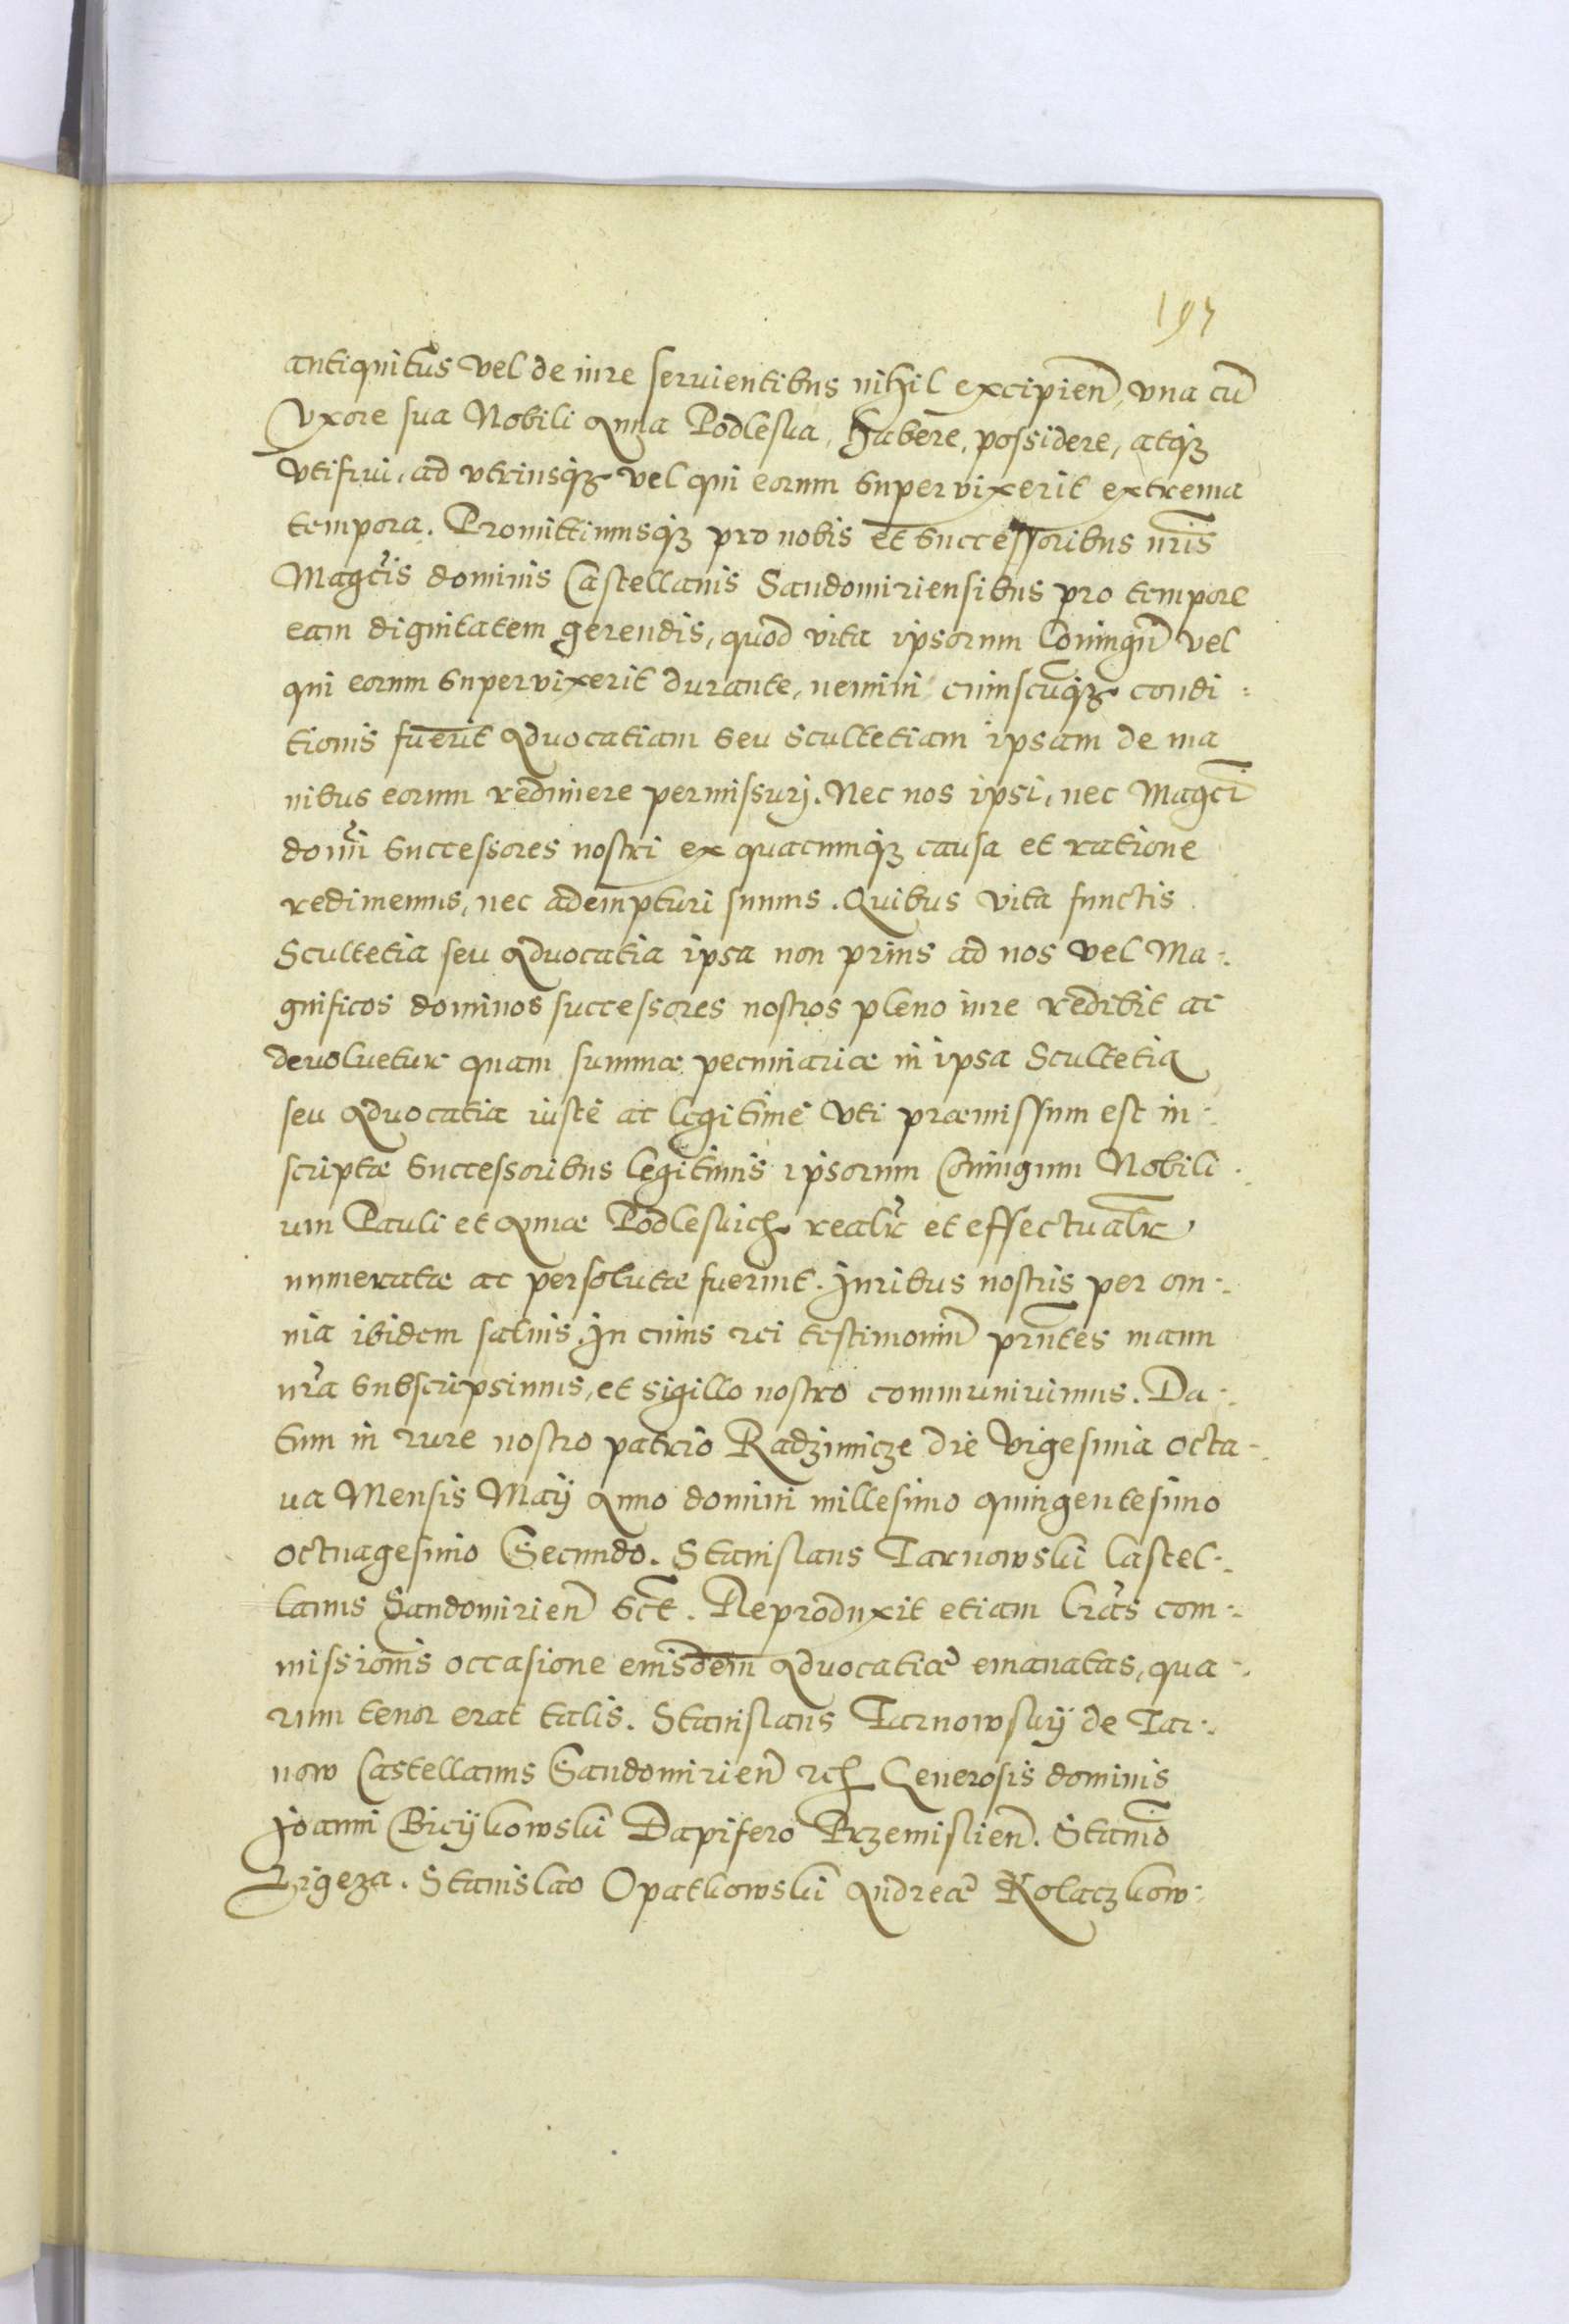 197
antiquitus vel de iure servientibus nihil excipien̄, vna cū
Vxore sua Nobili Anna Podleska, habere, possidere, atq₃
vtifrui, ad vtriusq₃ vel qui eorum supervixerit extrema
tempora. Promittimusq₃ pro nobis et successoribus nr̄is
Magc̄is dominis Castellanis Sandomiriensibus pro tempore
eam dignitatem gerendis, quod vita ipsorum Coniugū vel
qui eorum supervixerit durante, nemini cuiuscūq₃ condi:
tionis fuerit Aduocatiam seu scultetiam ipsam de ma
nibus eorum redimere permissurj. Nec nos ipsi, nec Magc̄i
domī successores nostri ex quacumq₃ causa et ratione
redimemus, nec adempturi sumus. Quibus vita functis
Scultetia seu Aduocatia ipsa non prius ad nos vel Ma:
gnificos dominos successores nostros pleno iure redibit ac
devoluetur quam summæ pecuniariæ in ipsa Scultetia
seu Aduocatia iustè ac legitimè vti præmissum est in:
scriptæ successoribus legitimis ipsorum Coniugum Nobili:
um Pauli et Annæ Podleskich realr̄ et effectualr̄
numeratæ ac persolutæ fuerint. Juribus nostris per om:
nia ibidem salvis. In cuius rei testimoniū prn̄tes manu
nr̄a subscripsimus, et sigillo nostro communivimus. Da:
tum in rure nostro patrio Radzimicze die Vigesima octa:
ua Mensis Maÿ Anno domini millesimo quingentesimo
octuagesimo Secundo. Stanislaus Tarnowski Castel:
lanus Sandomirien̄ sct̄. Reproduxit etiam lr̄as com:
missionis occasione eiusdem Aduocatiæ emanatas, qua:
rum tenor erat talis. Stanislaus Tarnowskÿ de Tar:
now Castellanus Sandomirien̄ etc̄ Generosis dominis
Joanni Bicÿkowski Dapifero Przemislien̄. Stanīo
Ligeza. Stanislao Opatkowski Andreæ Kolaczkow: